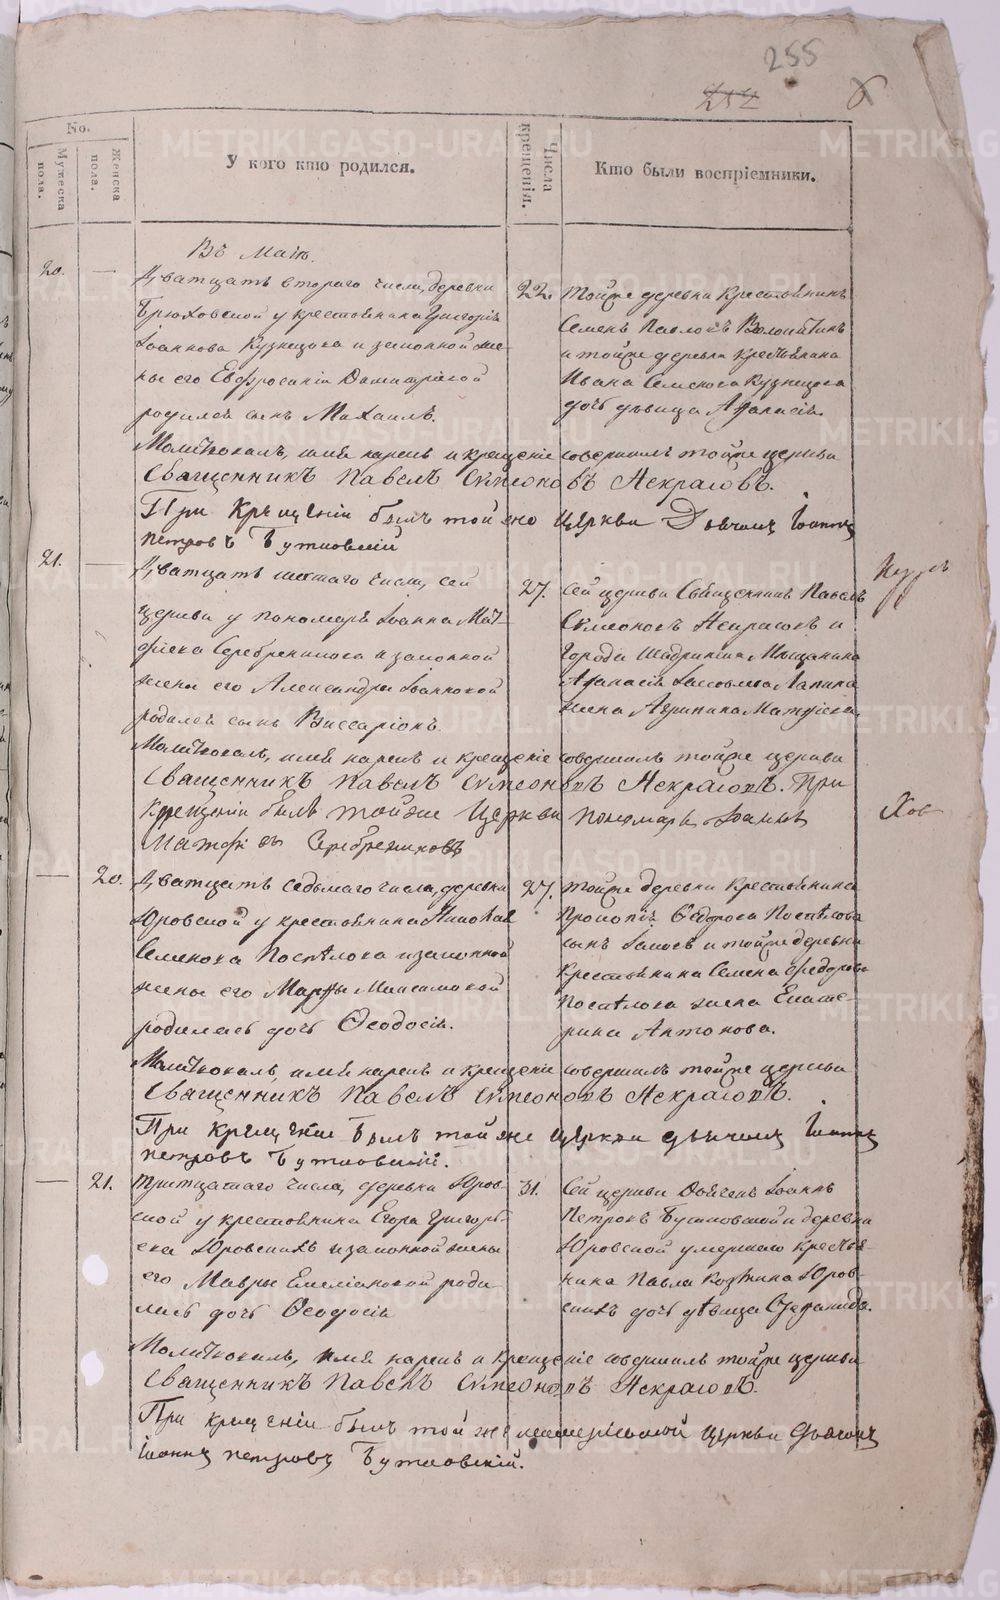 255
No.
Мужеска пола.
Женска пола.
У кого кто родился.
Числа крещенія.
Кто были воспріемники.
Въ Маіѣ.
20. — Дватцать втораго числа, деревни
Брюховской у крестьянина Григорія
Іоаннова Кузнецова и законной же-
ны его Евфросиніи Димитріевой
родился сынъ Михаилъ.
22. Тойже деревни крестьянинъ
Семенъ Павловъ
и тойже деревни крестьянина
Ивана Семенова Кузнецова
дочь дѣвица Афанасія.
Молитвовалъ, имя нарекъ и крещеніе совершилъ тойже церкви
Священникъ Павелъ Симеоновъ Некрасовъ.
При Крещеніи былъ той же Церкви Дьячекъ Іоаннъ
Петровъ Бутковскій
21. — Дватцать шестаго числа, сей
церкви у пономаря Іоанна Мат-
фіева Серебреникова и законной
жены его Александры Іоанновой
родился сынъ Виссаріонъ.
27. Сей церкви Священникъ Павелъ
Симеоновъ Некрасовъ и
города Шадринска Мѣщанина
Афанасія Іаковлева Лапина
жена Агрипина Матфіева.
Молитвовалъ, имя нарекъ и крещеніе совершилъ тойже церкви
Священникъ Павелъ Симеоновъ Некрасовъ. При
Крещеніи былъ тойже Церкви Пономарь Іоаннъ
Матфіевъ Серебрениковъ
— 20. Дватцать седьмаго числа, деревни
Юровской у крестьянина Николая
Семенова Поспѣлова и законной
жены его Марфы Максимовой
родилась дочь Ѳеодосія.
27. Тойже деревни крестьянина
Прокопія Ѳедорова Поспѣлова
сынъ Іаковъ и тойже деревни
крестьянина Семена Федорова
Поспѣлова жена Екате-
рина Антонова.
Молитвовалъ, имя нарекъ и крещеніе совершилъ тойже церкви
Священникъ Павелъ Симеоновъ Некрасовъ.
При крещеніи былъ той же церкви дьячекъ Іоаннъ
Петровъ Бутковскій.
— 21. Тритцатаго числа, деревни Юров-
ской у крестьянина Егора Григорь-
ева Юровскихъ и законной жены
его Мавры Емеліановой роди-
лась дочь Ѳеодосія
31. Сей церкви Дьячекъ Іоаннъ
Петровъ Бутковской и деревни
Юровской умершаго крестья-
нина Павла Козмина Юров-
скихъ дочь дѣвица Степанида.
Молитвовалъ, имя нарекъ и крещеніе совершилъ тойже церкви
Священникъ Павелъ Симеоновъ Некрасовъ.
При крещеніи былъ той же церкви дьячекъ
Іоаннъ Петровъ Бутковскій.
METRIKI.GASO-URAL.RU